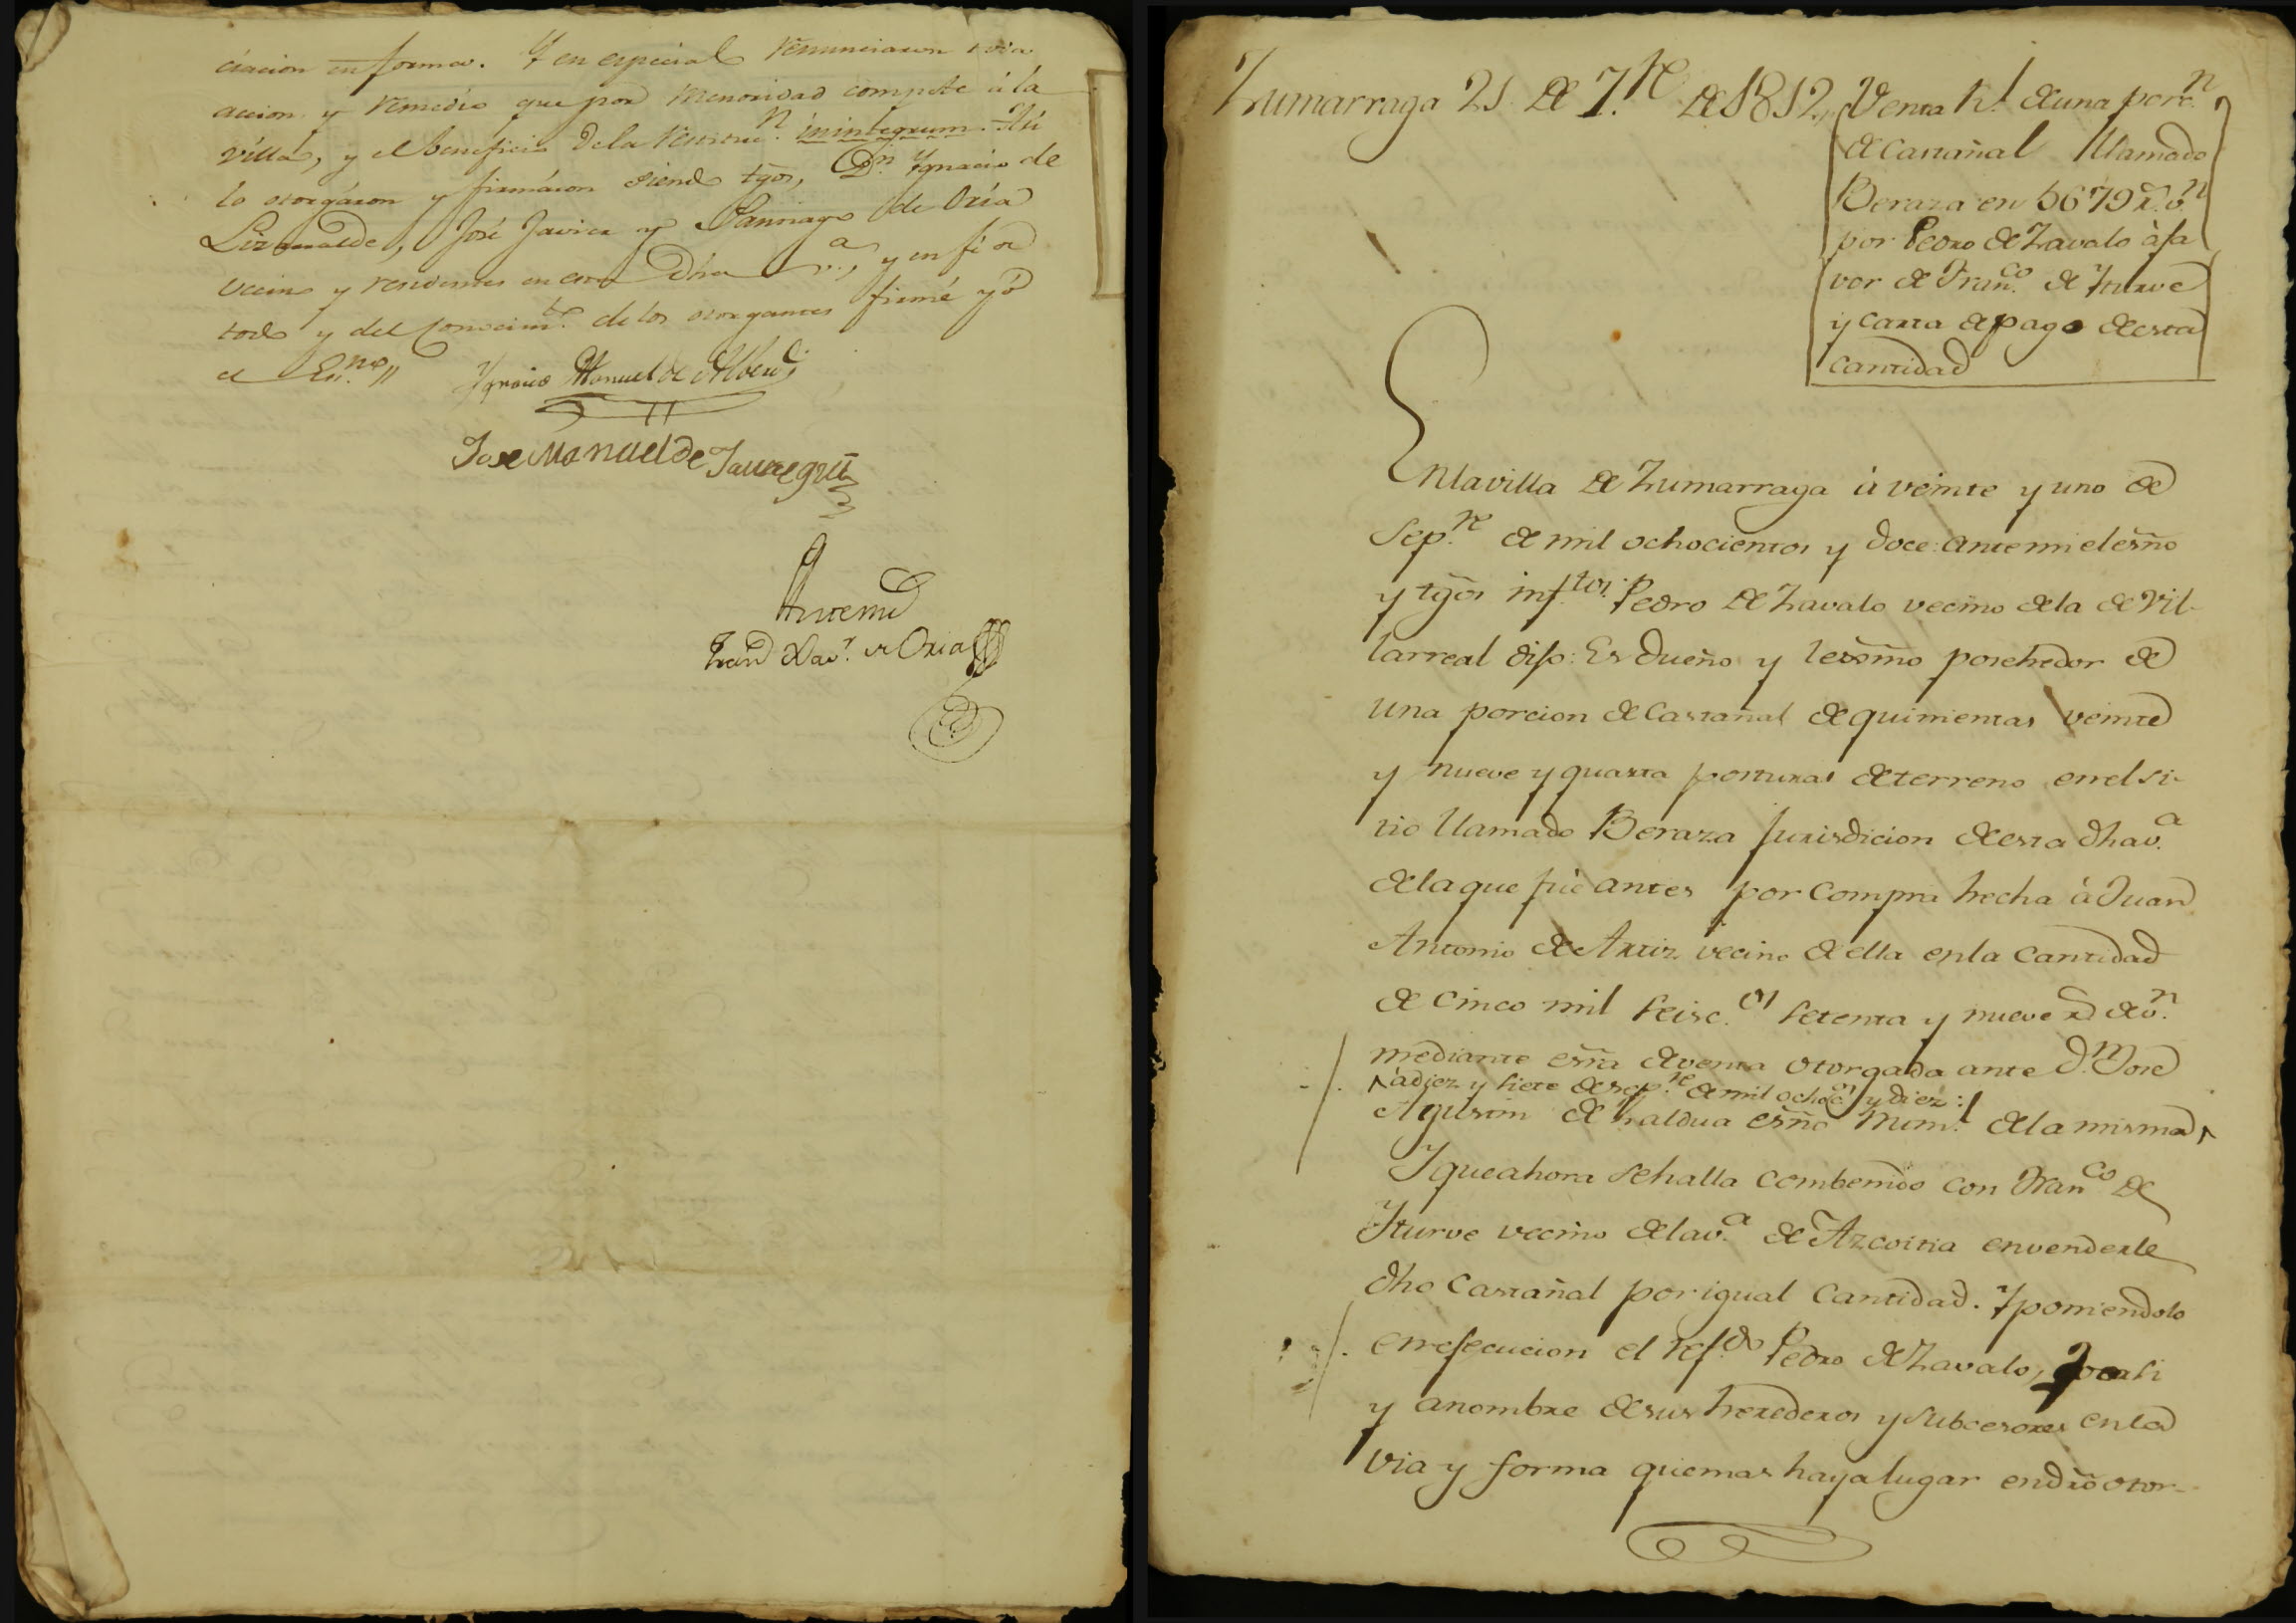 ciacion en forma. Y en especial renunciaron toda
accion y remedio que por menoridad compete á la
villa, y el beneficio de la restitu.n in integrum. Asi
lo otorgáron y firmáron siendo tgos, D.n Ygnacio de
Lizarralde, José Javier y Santiago de Oria
vecino y residentes en esta dha v.a, y en fé de
todo y del conocim.to de los otorgantes firmé yó
el Es.no //
Ygnacio Manuel de Alberdi
Jose Manuel de Jauregui
Antemi
Fran.co Xav.r de Oria
Zumarraga 21 de 7.re de 1812,, Venta R.l de una porc.n
de Castañal llamado
Beraza en 5679 r.s v.n
por Pedro de Zavalo à fa
vor de Fran.co de Yturve
y carta de pago de esta
cantidad
En la villa de Zumarraga à veinte y uno de
Sep.re de mil ochocientos y doce: ante mi el esño
y tgõs inf.tos Pedro de Zavalo vecino de la de Vil-
larreal dijo: Es dueño y lexmo porehedor de
una porcion de Castañal de quinientas veinte
y nueve y quarta posturas de terreno en el si-
tio llamado Beraza Jurisdicion de esta dha v.a
de la que fuè antes por compra hecha à Juan
Antonio de Artiz vecino de ella en la cantidad
de cinco mil seisc.os setenta y nueve r.s de v.n
mediante esrña de venta otorgada ante D.n Jose
à diez y siete de sep.re de mil ochoc.os y diez:
Agustin de Zaldua esño Num.l de la misma
Y que ahora se halla combenido con Fran.co de
Yturve vecino de la v.a de Azcoitia en venderle
dho Castañal por igual Cantidad. Y poniendolo
en ejecucion el ref.do Pedro de Zavalo, por si
y a nombre de sus herederos y subcesores en la
via y forma que mas haya lugar en dro otor-